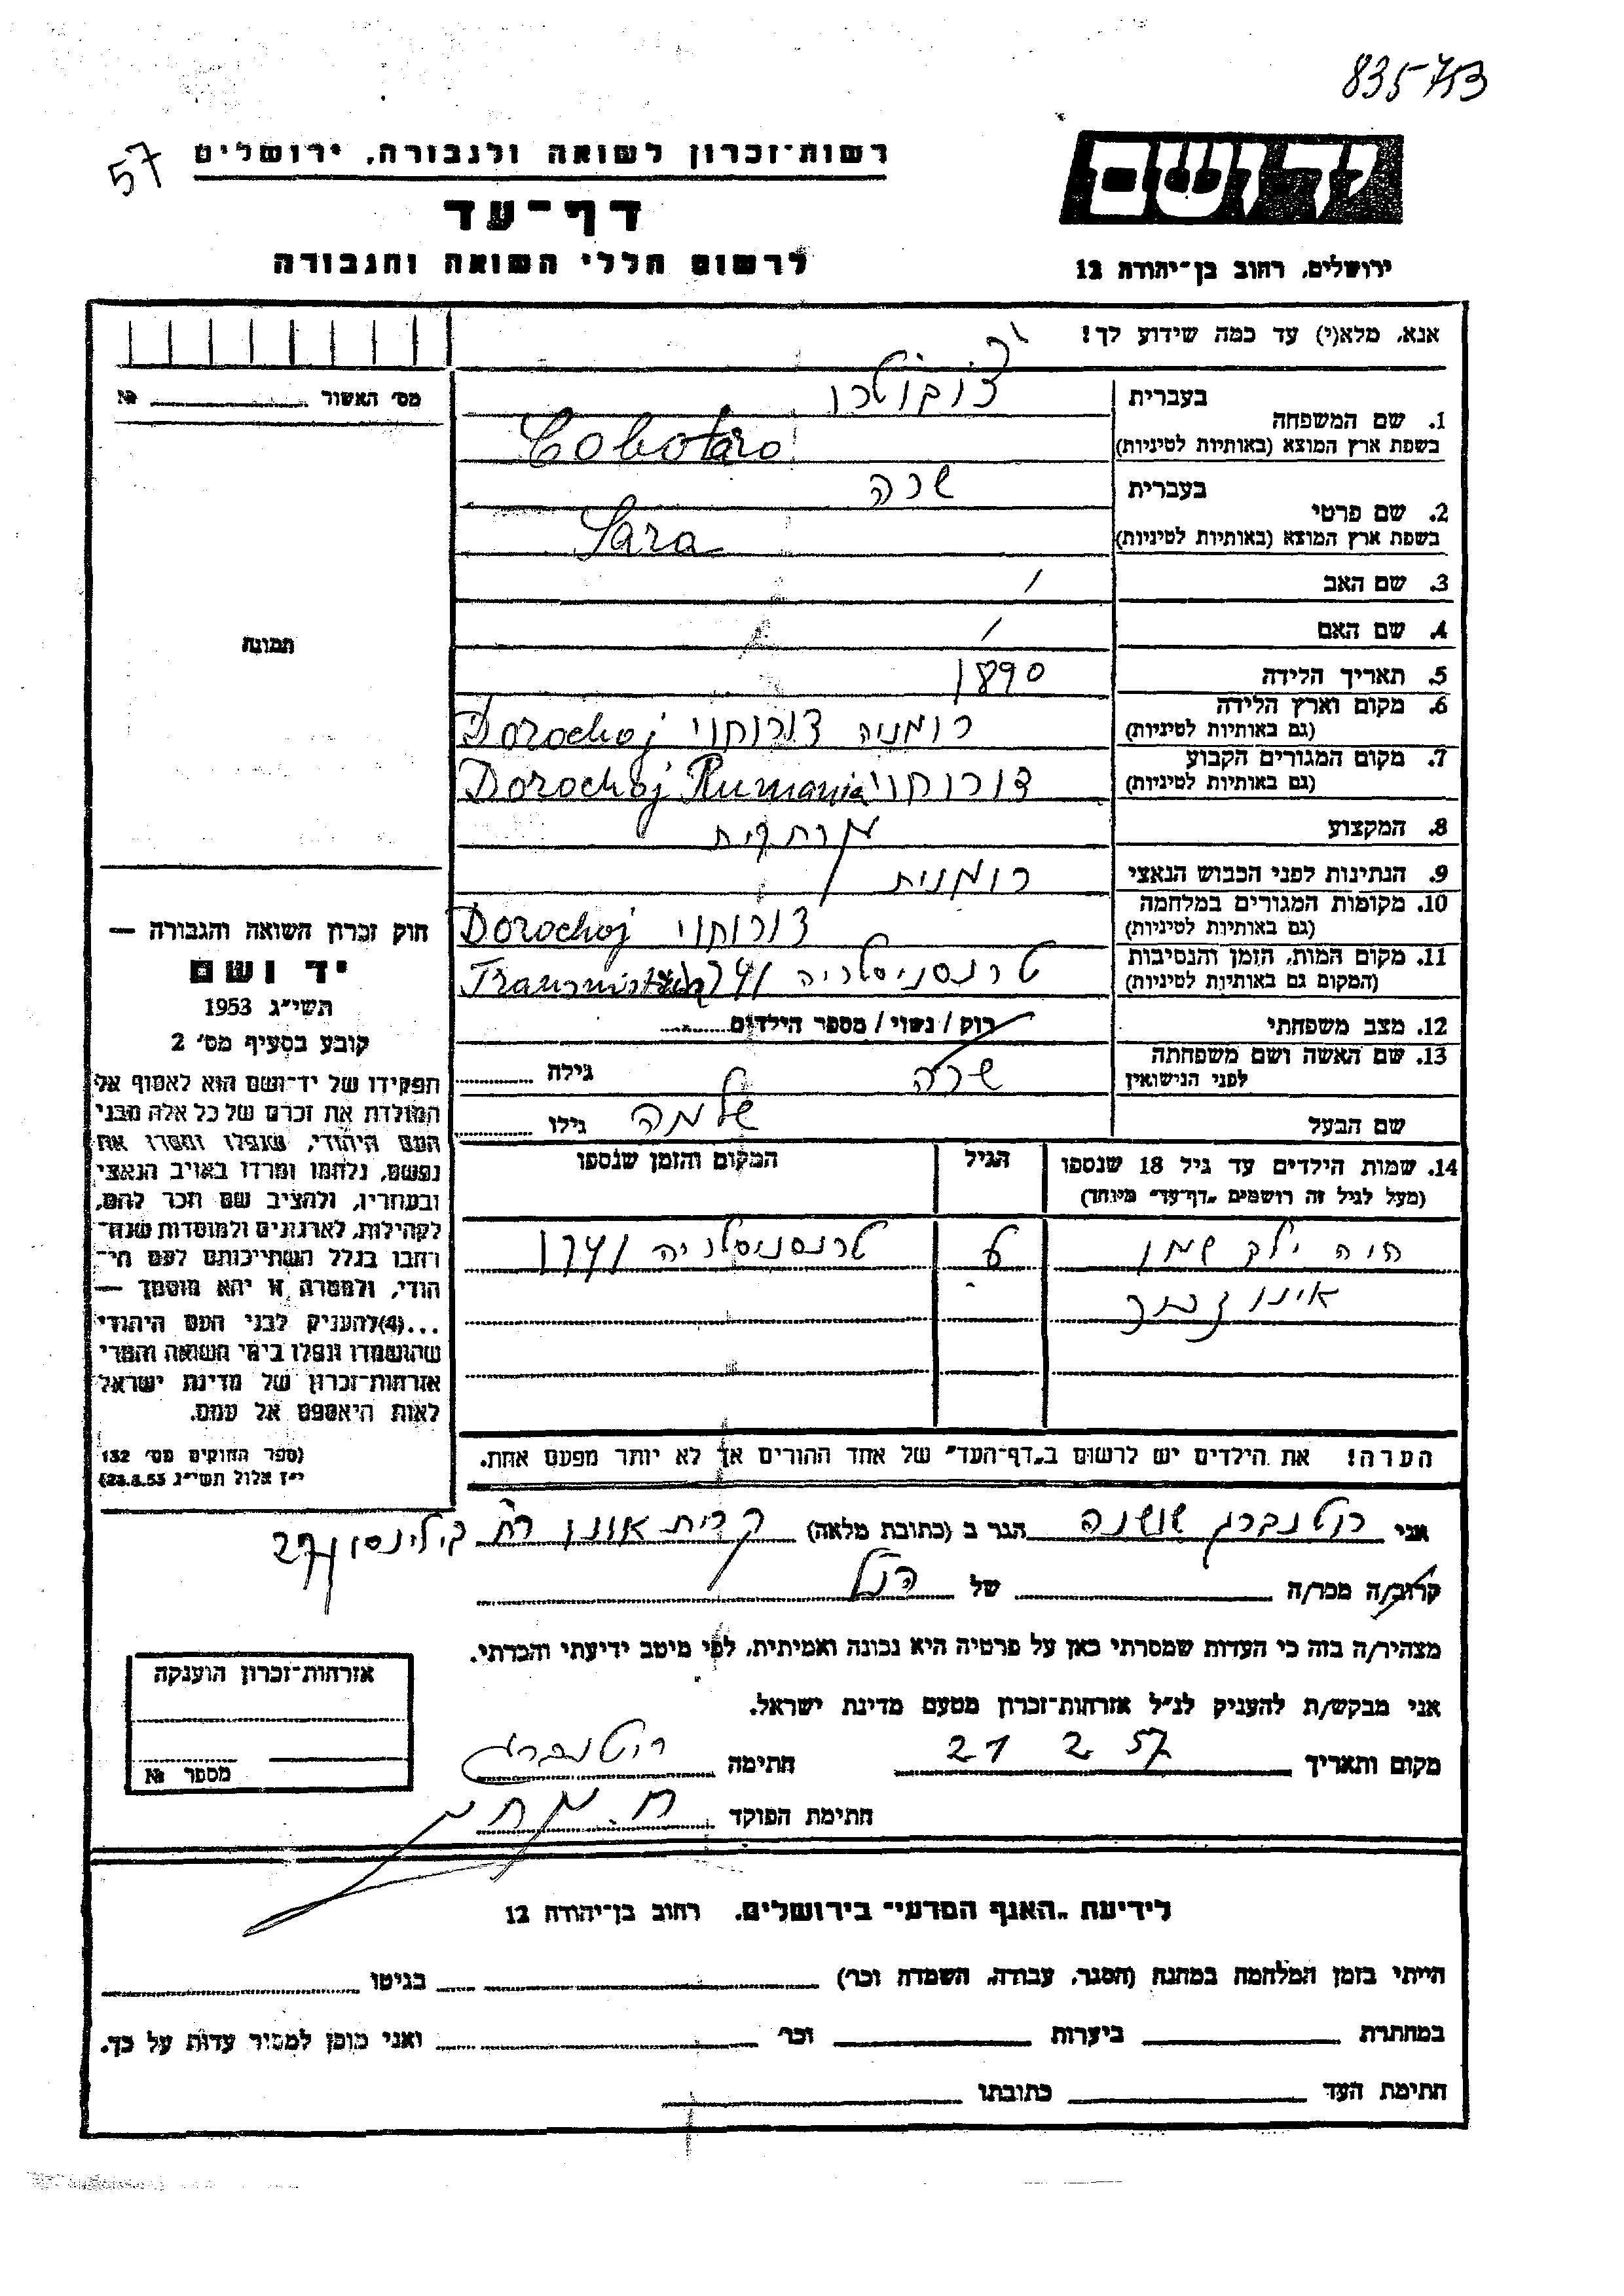 835753
57
רשות־זכרון לשואה ולגבורה, ירושלים
דף־עד
לרשום חללי השואה והגבורה
ידושם
ירושלים, רחוב בן־יהודה 12
אנא, מלא(י) עד כמה שידוע לך!
מס׳ האשור № 
בעברית
1. שם המשפחה
בשפת ארץ המוצא (באותיות לטיניות)
Cobotaro
בעברית שרה
2. שם פרטי
בשפת ארץ המוצא (באותיות לטיניות) Sara
3. שם האב /
4. שם האם /
5. תאריך הלידה 1890
6. מקום וארץ הלידה
(גם באותיות לטיניות)
רומניה דורוחוי Dorochoj
7. מקום המגורים הקבוע
(גם באותיות לטיניות)
דורוחוי Dorochoj Rumania
8. המקצוע
9. הנתינות לפני הכבוש הנאצי רומנית
10. מקומות המגורים במלחמה
(גם באותיות לטיניות)
דורוחוי Dorochoj
11. מקום המות, הזמן והנסיבות
(המקום גם באותיות לטיניות)
טרנסניסטריה 1941
12. מצב משפחתי רוק / נשוי / מספר הילדים
13. שם האשה ושם משפחתה
לפני הנישואין
שרה גילה
שם הבעל שלמה גילו
14. שמות הילדים עד גיל 18 שנספו
(מעל לגיל זה רושמים „דף־עד" מיוחד)
הגיל
המקום והזמן שנספו
היה ילד שמו 6 טרנסניסטריה 1941
אינו זכור
הערה! את הילדים יש לרשום ב„דף־העד" של אחד ההורים אך לא יותר מפעם אחת.
תמונה
חוק זכרון השואה והגבורה —
יד ושם
תשי״ג 1953
קובע בסעיף מס׳ 2
תפקידו של יד־ושם הוא לאסוף אל
המולדת את זכרם של כל אלה מבני
העם היהודי, שנפלו ומסרו את
נפשם, נלחמו ומרדו באויב הנאצי
ובעוזריו, ולהציב שם וזכר להם,
לקהילות, לארגונים ולמוסדות שנח־
רבו בגלל השתייכותם לעם הי־
הודי, ולמטרה זו יהא מוסמך —
...(4)להעניק לבני העם היהודי
שהושמדו ונפלו בימי השואה והמרי
אזרחות־זכרון של מדינת ישראל
לאות היאספם אל עמם.
(ספר החוקים מס׳ 132
י״ז אלול תשי״ג 28.8.53)
אני רוטנברג שושנה הגר ב (כתובת מלאה) קרית אונו רח בילינסון 27
קרוב/ה מכר/ה של הנ״ל
מצהיר/ה בזה כי העדות שמסרתי כאן על פרטיה היא נכונה ואמיתית, לפי מיטב ידיעתי והכרתי.
אני מבקש/ת להעניק לנ״ל אזרחות־זכרון מטעם מדינת ישראל.
מקום ותאריך 21 2 57 חתימה רוטנברג
חתימת הפוקד
אזרחות־זכרון הוענקה
מספר №
לידיעת „האגף המדעי" בירושלים, רחוב בן־יהודה 12
הייתי בזמן המלחמה במחנה (הסגר, עבודה, השמדה וכר׳) בגיטו
במחתרת ביערות וכר׳ ואני מוכן למסור עדות על כך.
חתימת העד כתובתו